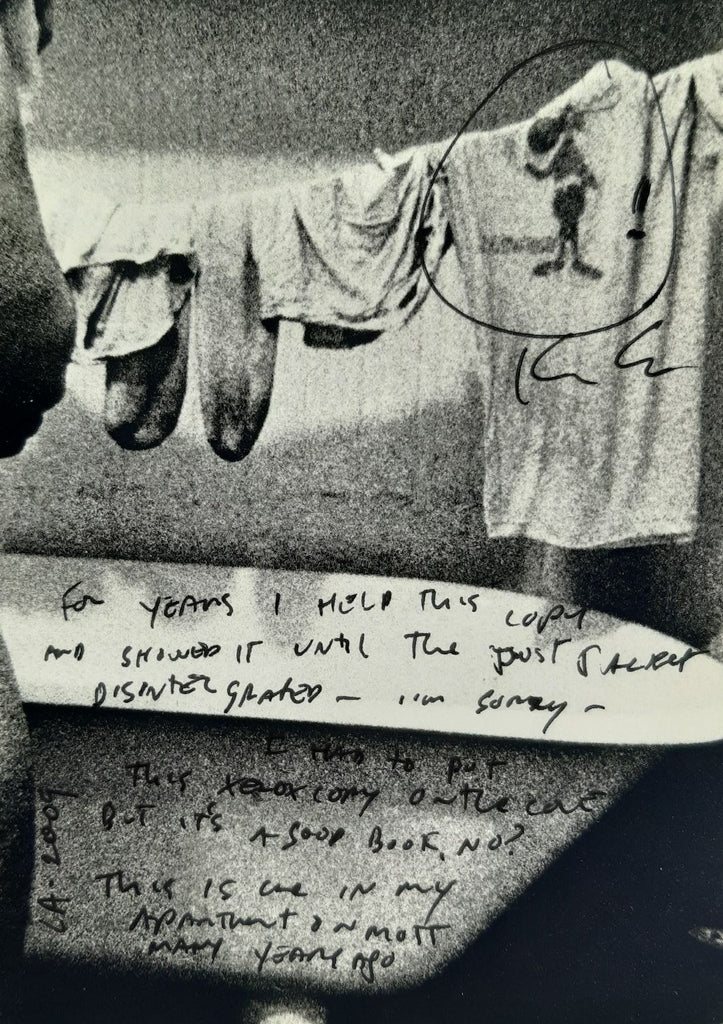 For YEARS I HELD THIS COPY
AND SHOWED IT UNTIL THE DUST JACKET
DISINTEGRATED — I'M SORRY —
I HAD TO PUT
THIS XEROX COPY ON THE COVE
BUT IT'S A GOOD BOOK, NO?
THIS IS ME IN MY
APARTMENT ON MOTT
MANY YEARS AGO
LA. 2009